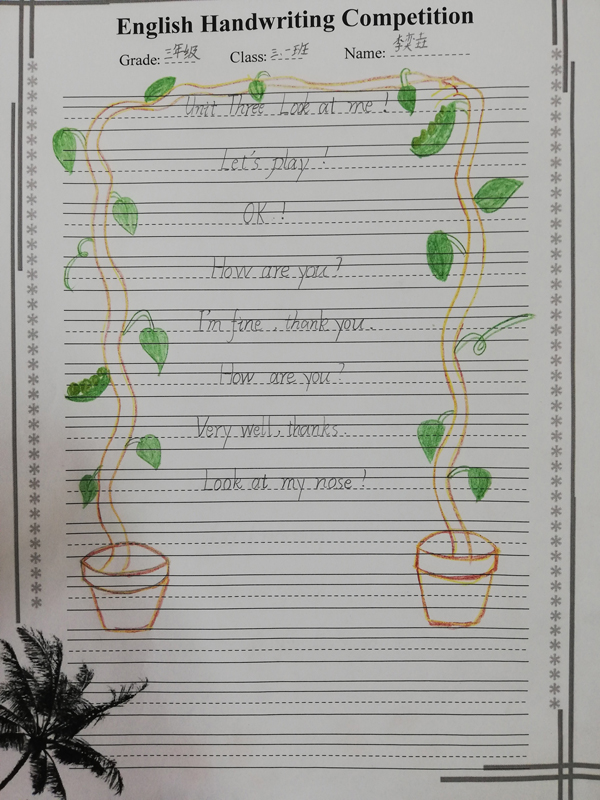 English Handwriting Competition
Grade: 三年级 Class: 三.一班 Name: 李奕垚
Unit Three Look at me !
Let's play !
OK !
How are you?
I'm fine , thank you .
How are you?
Very well , thanks .
Look at my nose !